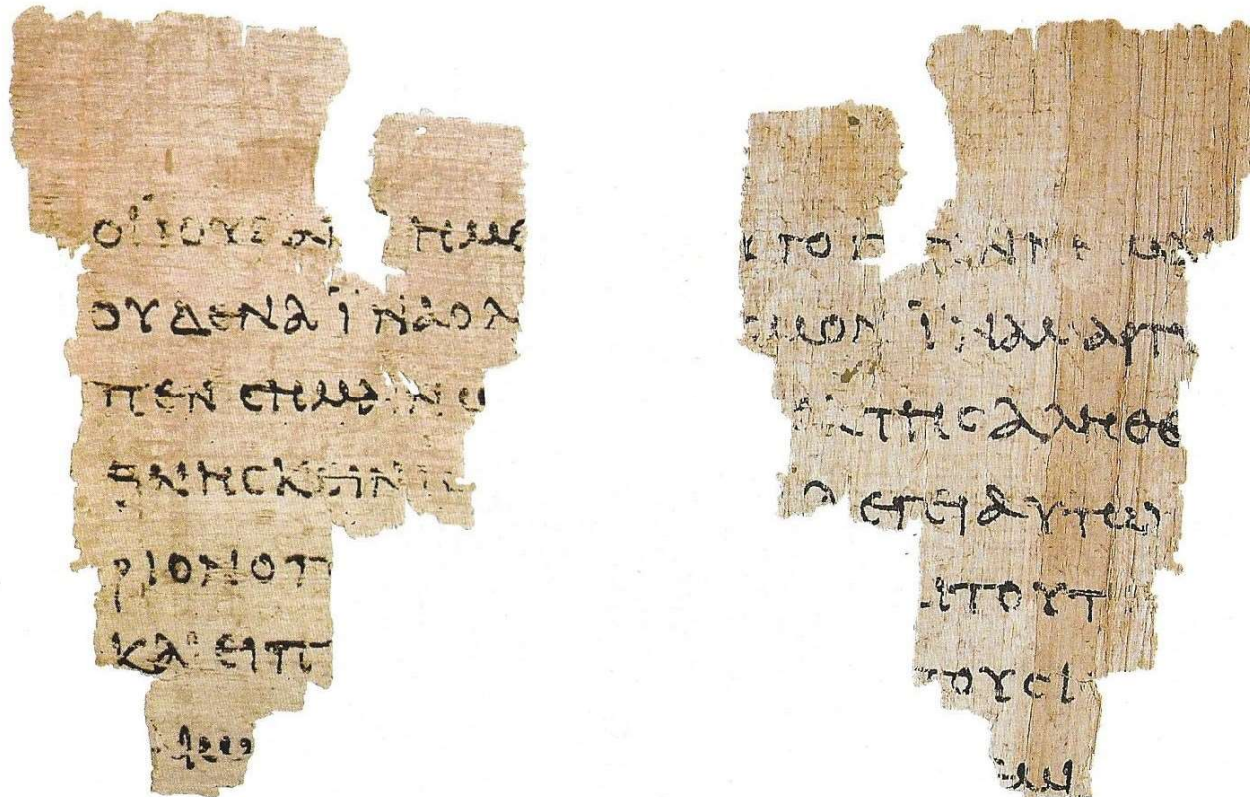 ΟΙ ΙΟΥΔΑΙ ΗΜΕ
ΟΥΔΕΝΑ ΪΝΑ Ο Λ
ΠΕΝ ϹΗΜΑΙΝΩ
ΘΝΗϹΚΕΙΝ
ΡΙΟΝ Ο Π
ΚΑΙ ΕΙΠ
ΥΤΟ Γ ΕΝΝΗΜΑΙ
ϹΜΟΝ ΪΝΑ ΜΑΡΤ
ΕΚ ΤΗϹ ΑΛΗΘΕ
ΛΕΓΕΙ ΑΥΤΩ
ΑΙ ΤΟΥΤ
ΤΟΥϹ Ι